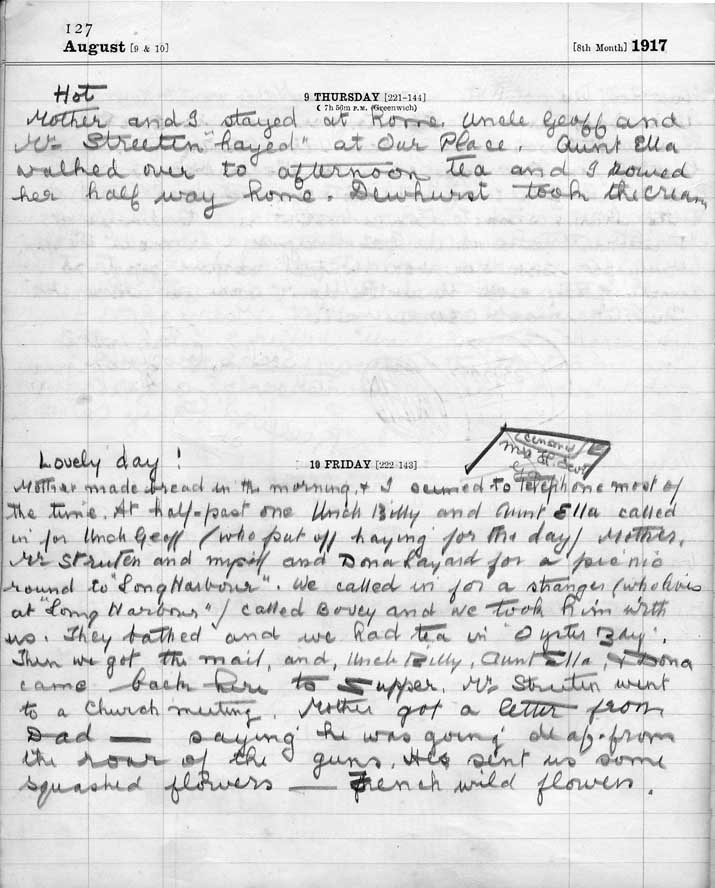 127
August [9 & 10] [8th Month] 1917
Hot
9 THURSDAY [221-144]
( 7h 56m P.M. (Greenwich)
Mother and I stayed at home. Uncle Geoff and
Mr Streeten "hayed" at Our Place. Aunt Ella
walked over to afternoon tea and I rowed
her half way home. Dewhurst took the cream,
Lovely day!
10 FRIDAY [222-143]
Censored
Mother made bread in the morning, & I seemed to Telephone most of
the time. At half-past one Uncle Billy and Aunt Ella called
in for Uncle Geoff (who put off haying for the day) Mother,
Mr Streeten and myself and Dona Layard for a picnic
round to "Long Harbour". We called in for a stranger (who lives
at "Long Harbour") called Bovey and we took him with
us. They bathed and we had tea in "Oyster Bay".
Then we got the mail, and, Uncle Billy, Aunt Ella, & Dona
came back here to supper. Mr Streeten went
to a Church meeting. Mother got a letter from
Dad — saying he was going deaf from
the roar of the guns. He sent us some
squashed flowers — French wild flowers.